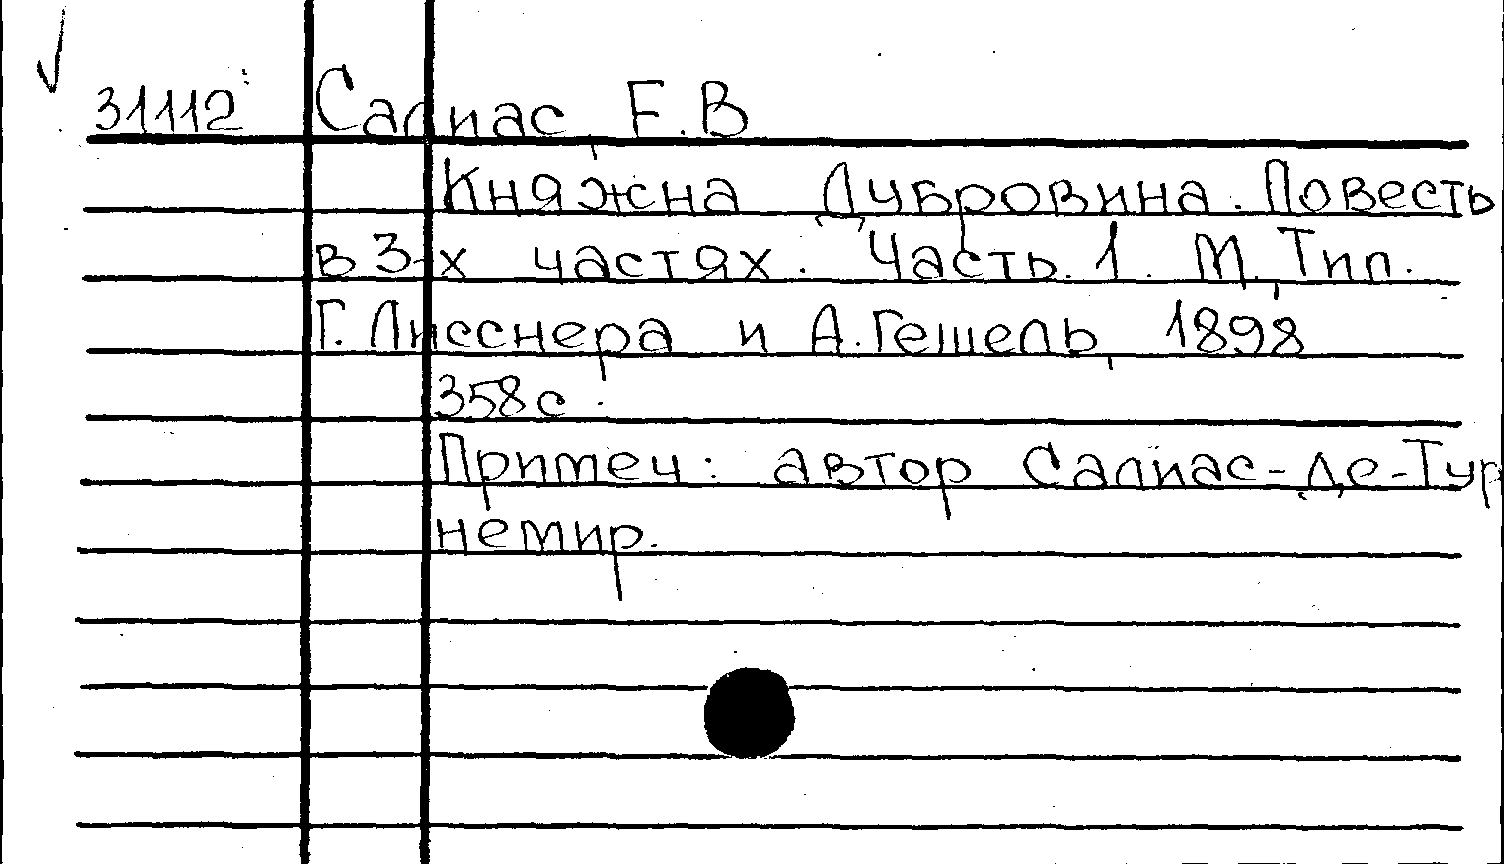 31112 Салиас, Е.В
Княжна Дубровина. Повесть
в 3-х частях. Часть. 1. М. Тип.
Г. Лисснера и А. Гешель, 1898
358с.
Примеч: автор Салиас-де-Тур
немир.